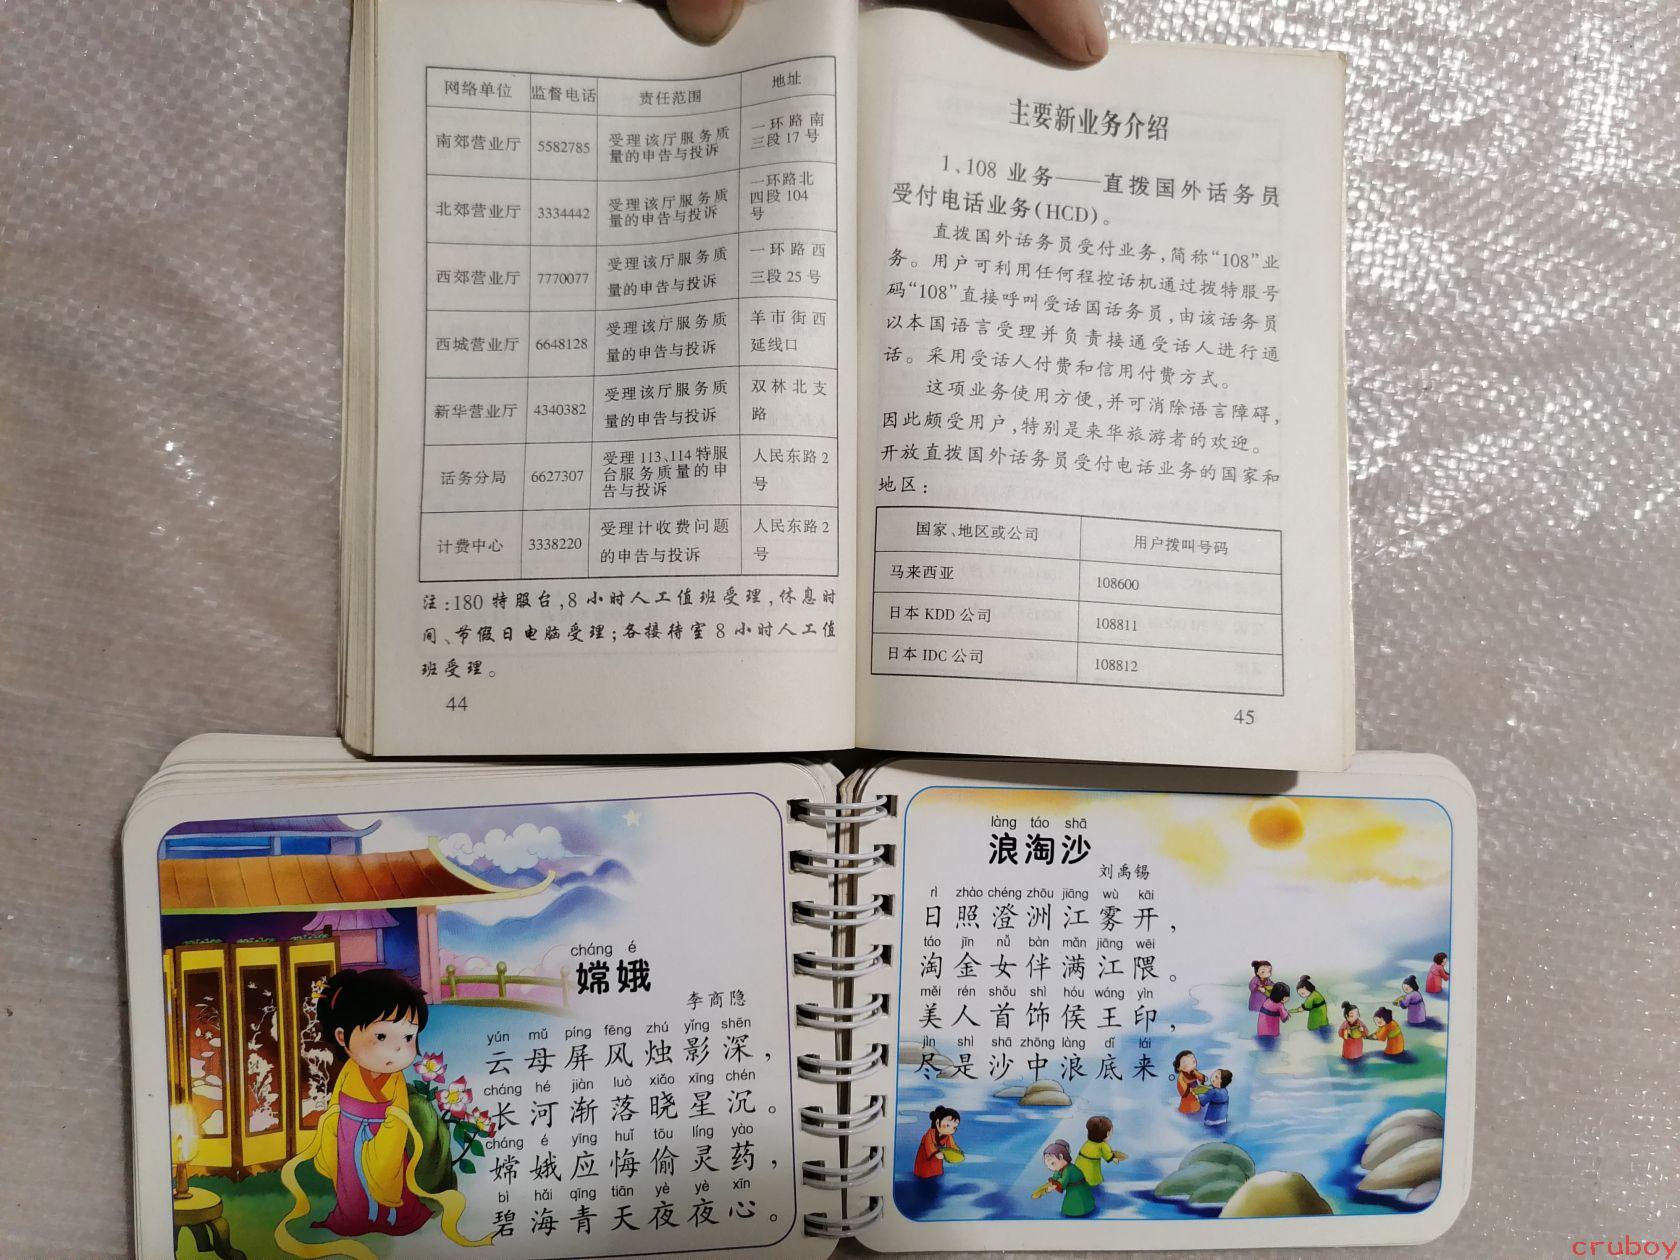 网络单位 监督电话 责任范围 地址
南郊营业厅 5582785 受理该厅服务质量的申告与投诉 一环路南三段17号
北郊营业厅 3334442 受理该厅服务质量的申告与投诉 一环路北四段104号
西郊营业厅 7770077 受理该厅服务质量的申告与投诉 一环路西三段25号
西城营业厅 6648128 受理该厅服务质量的申告与投诉 羊市街西延线口
新华营业厅 4340382 受理该厅服务质量的申告与投诉 双林北支路
话务分局 6627307 受理113、114特服台服务质量的申告与投诉 人民东路2号
计费中心 3338220 受理计收费问题的申告与投诉 人民东路2号
注:180特服台,8小时人工值班受理,休息时
间、节假日电脑受理;各接待室8小时人工值
班受理。
44
主要新业务介绍
1、108 业务——直拨国外话务员
受付电话业务(HCD)。
直拨国外话务员受付业务,简称“108”业
务。用户可利用任何程控话机通过拨特服号
码“108”直接呼叫受话国话务员,由该话务员
以本国语言受理并负责接通受话人进行通
话。采用受话人付费和信用付费方式。
这项业务使用方便,并可消除语言障碍,
因此颇受用户,特别是来华旅游者的欢迎。
开放直拨国外话务员受付电话业务的国家和
地区:
国家、地区或公司 用户拨叫号码
马来西亚 108600
日本 KDD 公司 108811
日本 IDC 公司 108812
45
cháng é
嫦娥
李商隐
yún mǔ píng fēng zhú yǐng shēn
云母屏风烛影深,
cháng hé jiàn luò xiǎo xīng chén
长河渐落晓星沉。
cháng é yīng huǐ tōu líng yào
嫦娥应悔偷灵药,
bì hǎi qīng tiān yè yè xīn
碧海青天夜夜心。
làng táo shā
浪淘沙
刘禹锡
rì zhào chéng zhōu jiāng wù kāi
日照澄洲江雾开,
táo jīn nǚ bàn mǎn jiāng wēi
淘金女伴满江隈。
měi rén shǒu shì hóu wáng yìn
美人首饰侯王印,
jìn shì shā zhōng làng dǐ lái
尽是沙中浪底来。
cruboy